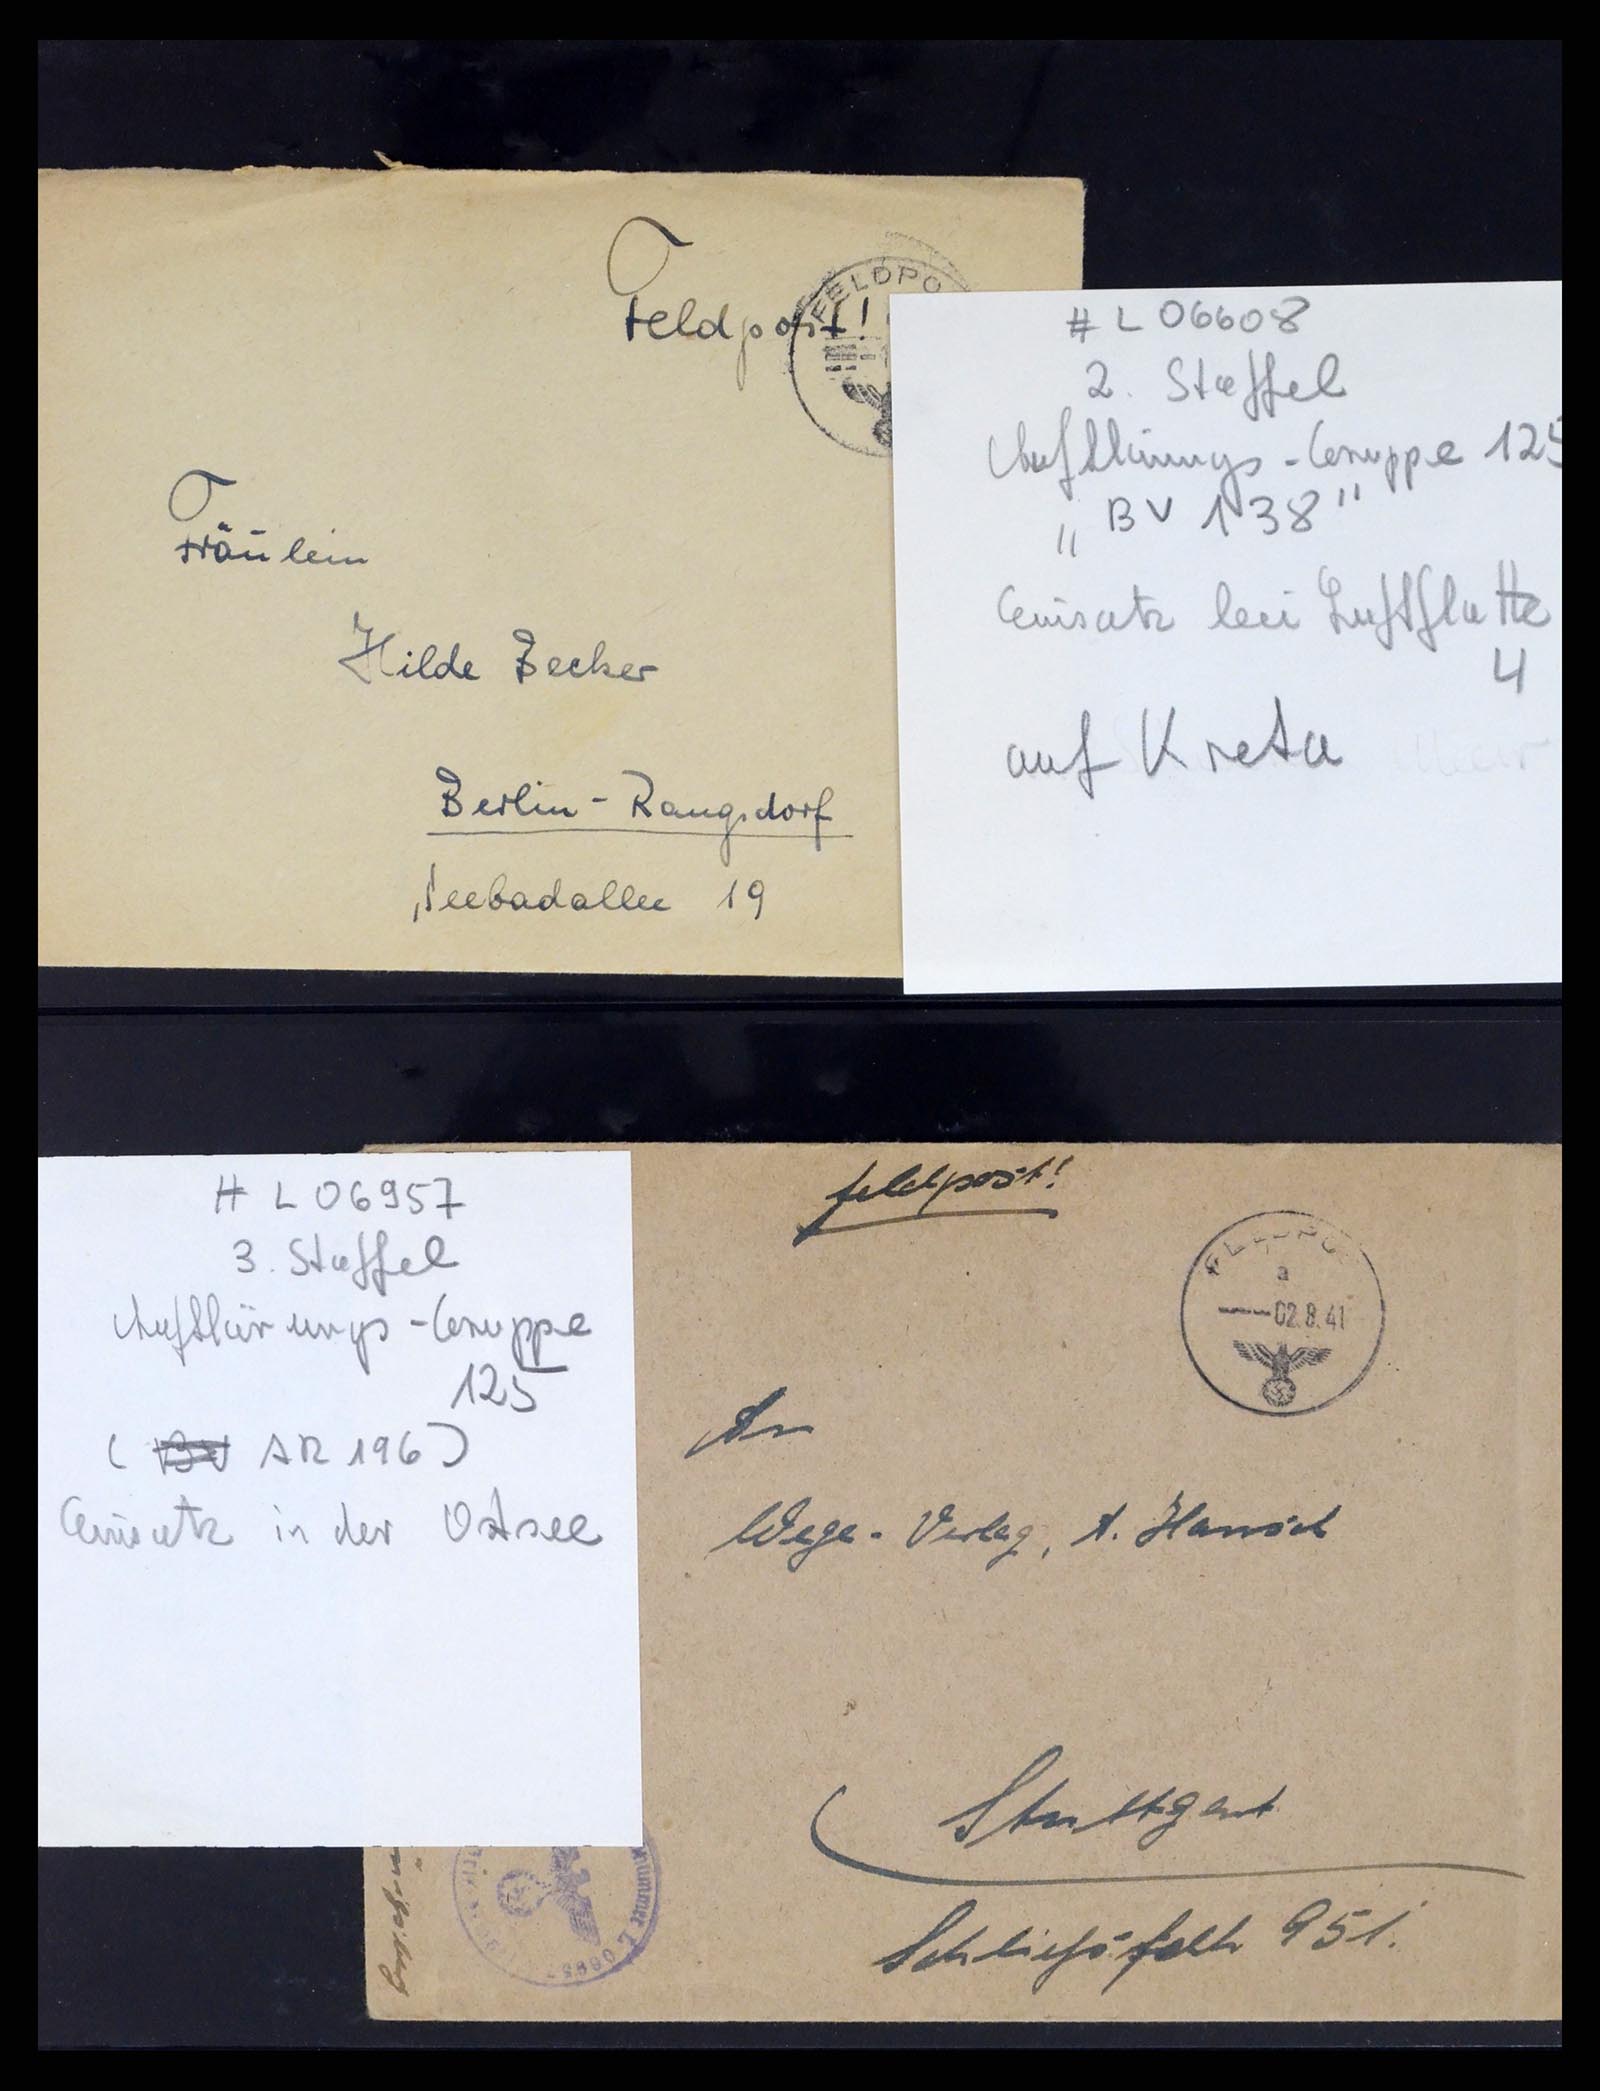 Feldpost!
FELDPO
Fräulein
Hilde Becker
Berlin-Rangsdorf
Seebadallee 19
# L 06608
2. Staffel
Aufklärungs-Gruppe 125
"BV 138"
Einsatz bei Luftflotte
4
auf Kreta
# L 06957
3. Staffel
Aufklärungs-Gruppe
125
(BV AR 196)
Einsatz in der Ostsee
Feldpost!
FELDPO
a
02.8.41
An
Wege-Verlag, A. Hansch
Stuttgart
Schließfach 951.
nummer L 06957